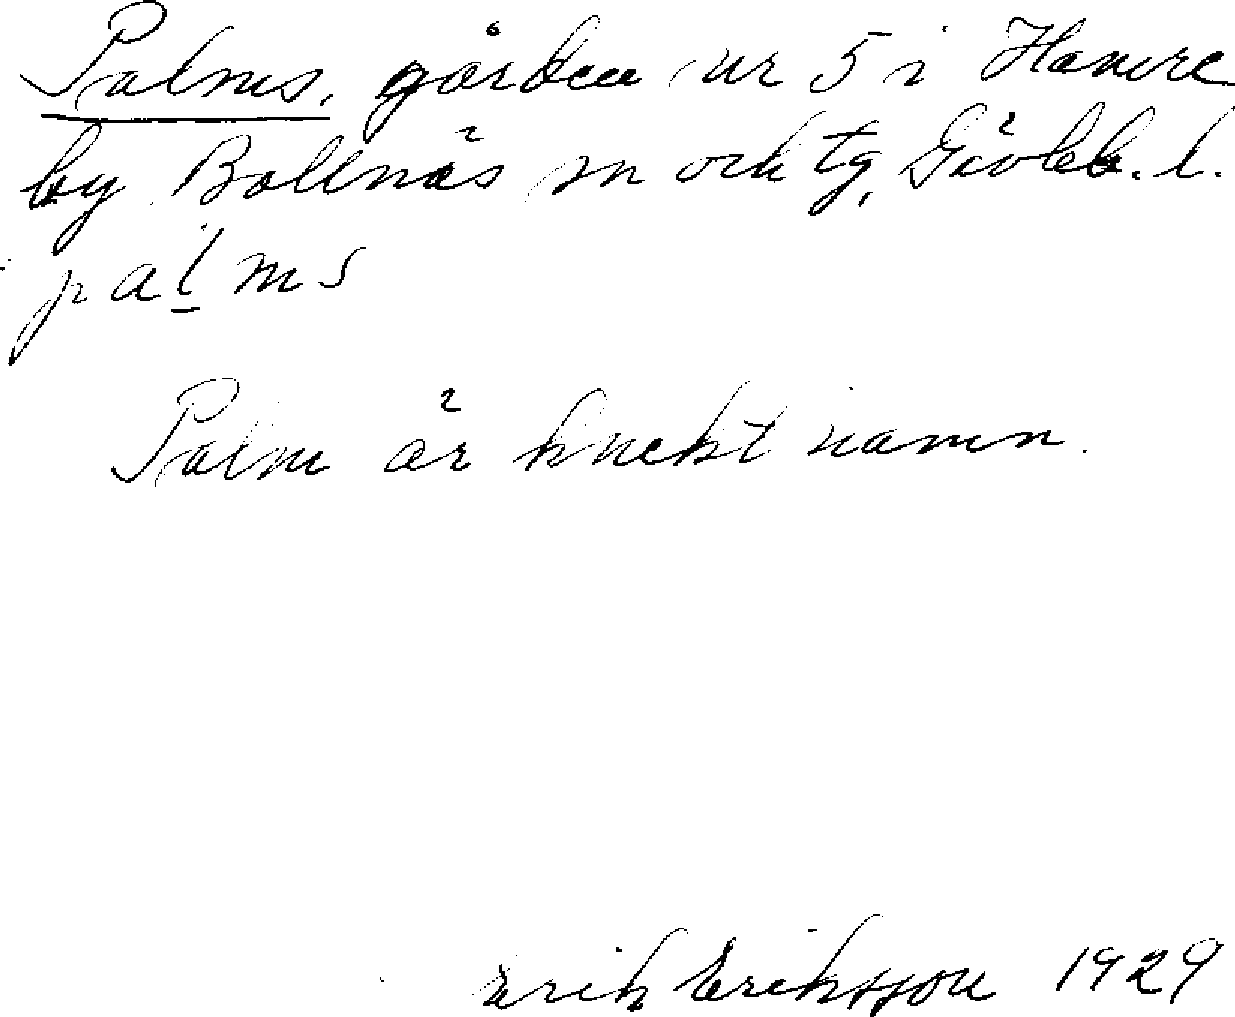 Palms, gården nr 5 i Hamre
by Bollnäs sn och tg, Gävleb. l.
palms
Palm är knekt namn.
Erik Eriksson 1929